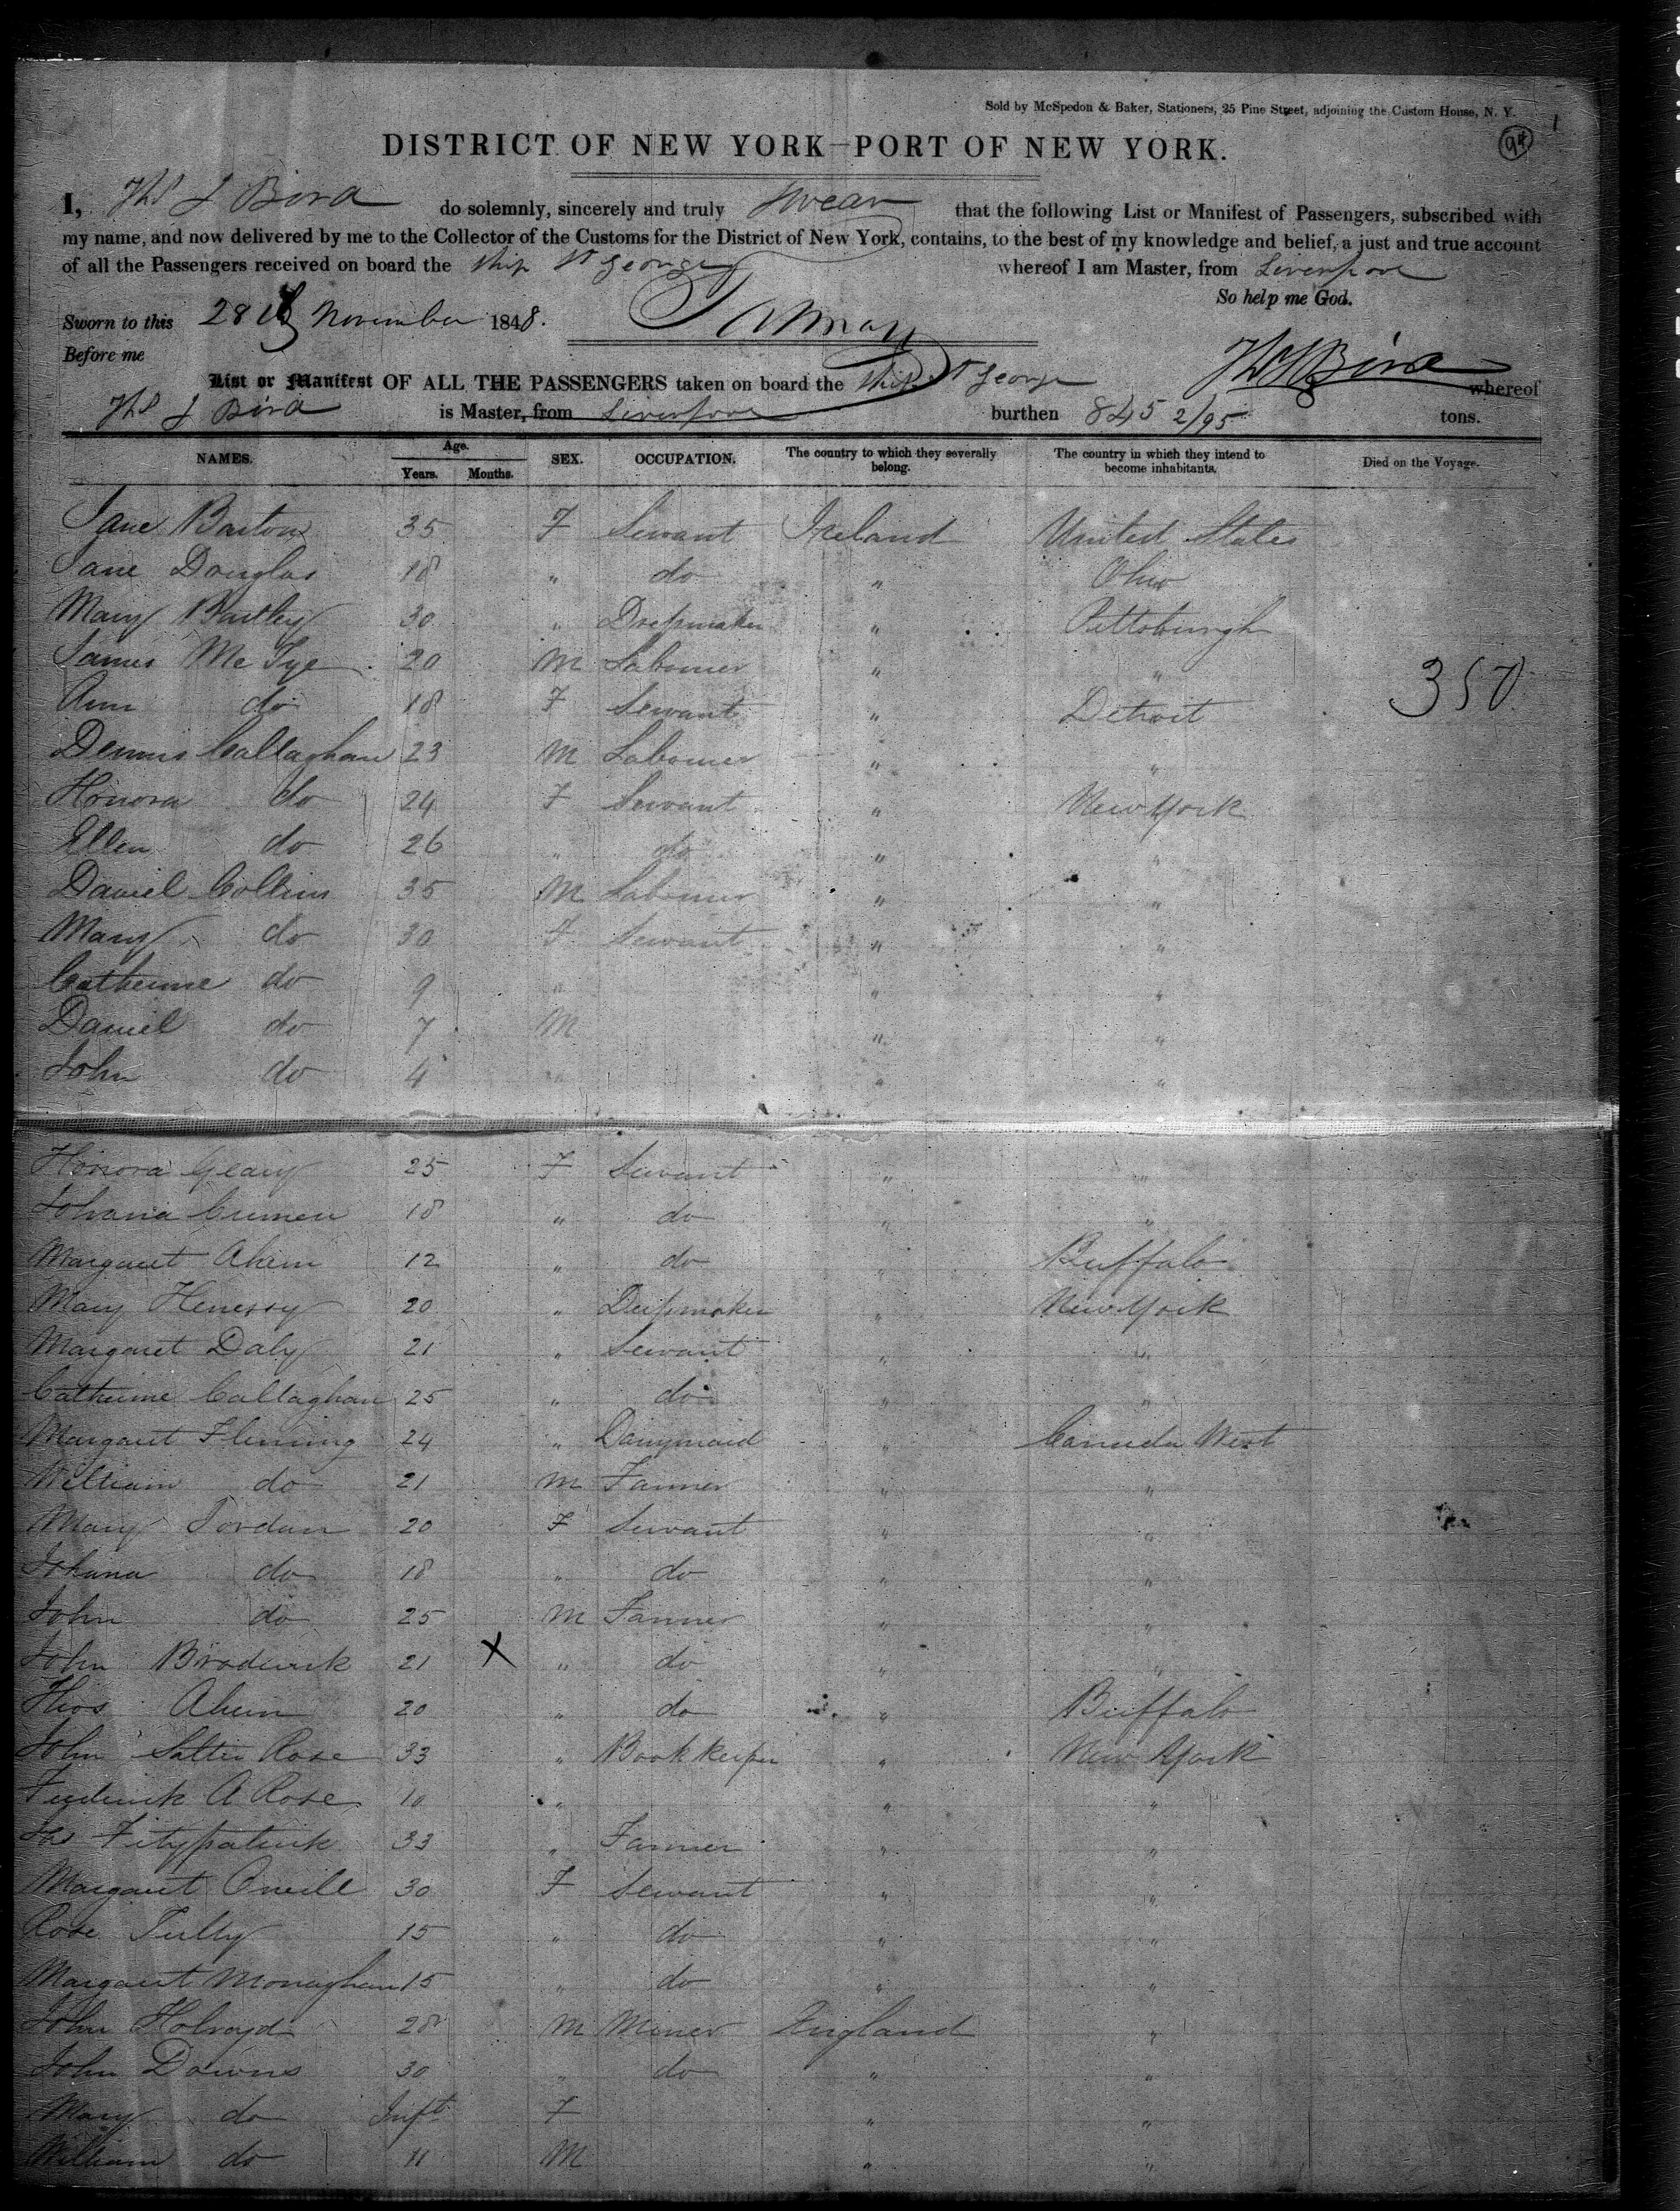 Sold by McSpedon & Baker, Stationers, 25 Pine Street, adjoining the Custom House, N. Y.
94
1
DISTRICT OF NEW YORK—PORT OF NEW YORK.
I, Thos J Bird do solemnly, sincerely and truly swear that the following List or Manifest of Passengers, subscribed with
my name, and now delivered by me to the Collector of the Customs for the District of New York, contains, to the best of my knowledge and belief, a just and true account
of all the Passengers received on board the Ship St George whereof I am Master, from Liverpool
So help me God.
Sworn to this 28th November 1848.
Before me
Thos J Bird
List or Manifest OF ALL THE PASSENGERS taken on board the Ship St George whereof
Thos J Bird is Master, from Liverpool burthen 845 2/95 tons.
NAMES. Age. Years. Months. SEX. OCCUPATION. The country to which they severally belong. The country in which they intend to become inhabitants. Died on the Voyage.
Jane Barton 35 F Servant Ireland United States
Jane Douglas 18 " do " Ohio
Mary Bartley 30 " Dressmaker " Pittsburgh
James Mc Tye 20 M Labourer " "
Ann do 18 F Servant " Detroit 350
Dennis Callaghan 23 M Labourer " "
Honora do 24 F Servant " New York
Ellen do 26 " do " "
Daniel Collins 35 M Labourer " "
Mary do 30 F Servant " "
Catherine do 9 " " "
Daniel do 7 M " "
John do 4 " " "
Honora Geary 25 F Servant " "
Johana Crimen 18 " do " "
Margaret Ahern 12 " do " Buffalo
Mary Henessy 20 " Dressmaker " New York
Margaret Daly 21 " Servant " "
Catherine Callaghan 25 " do " "
Margaret Fleming 24 " Dairymaid " Canada West
William do 21 M Farmer " "
Mary Jordan 20 F Servant " "
Johana do 18 " do " "
John do 25 M Farmer " "
John Broderick 21 X " do " "
Thos Ahern 20 " do " Buffalo
John Salter Rose 33 " Bookkeeper " New York
Frederick A Rose 10 " " "
Jas Fitzpatrick 33 " Farmer " "
Margaret Oneill 30 F Servant " "
Rose Tully 15 " do " "
Margaret Monaghan 15 " do " "
John Holroyd 28 M Miner England "
John Downs 30 " do " "
Mary do Inft F " "
William do 11 M " "